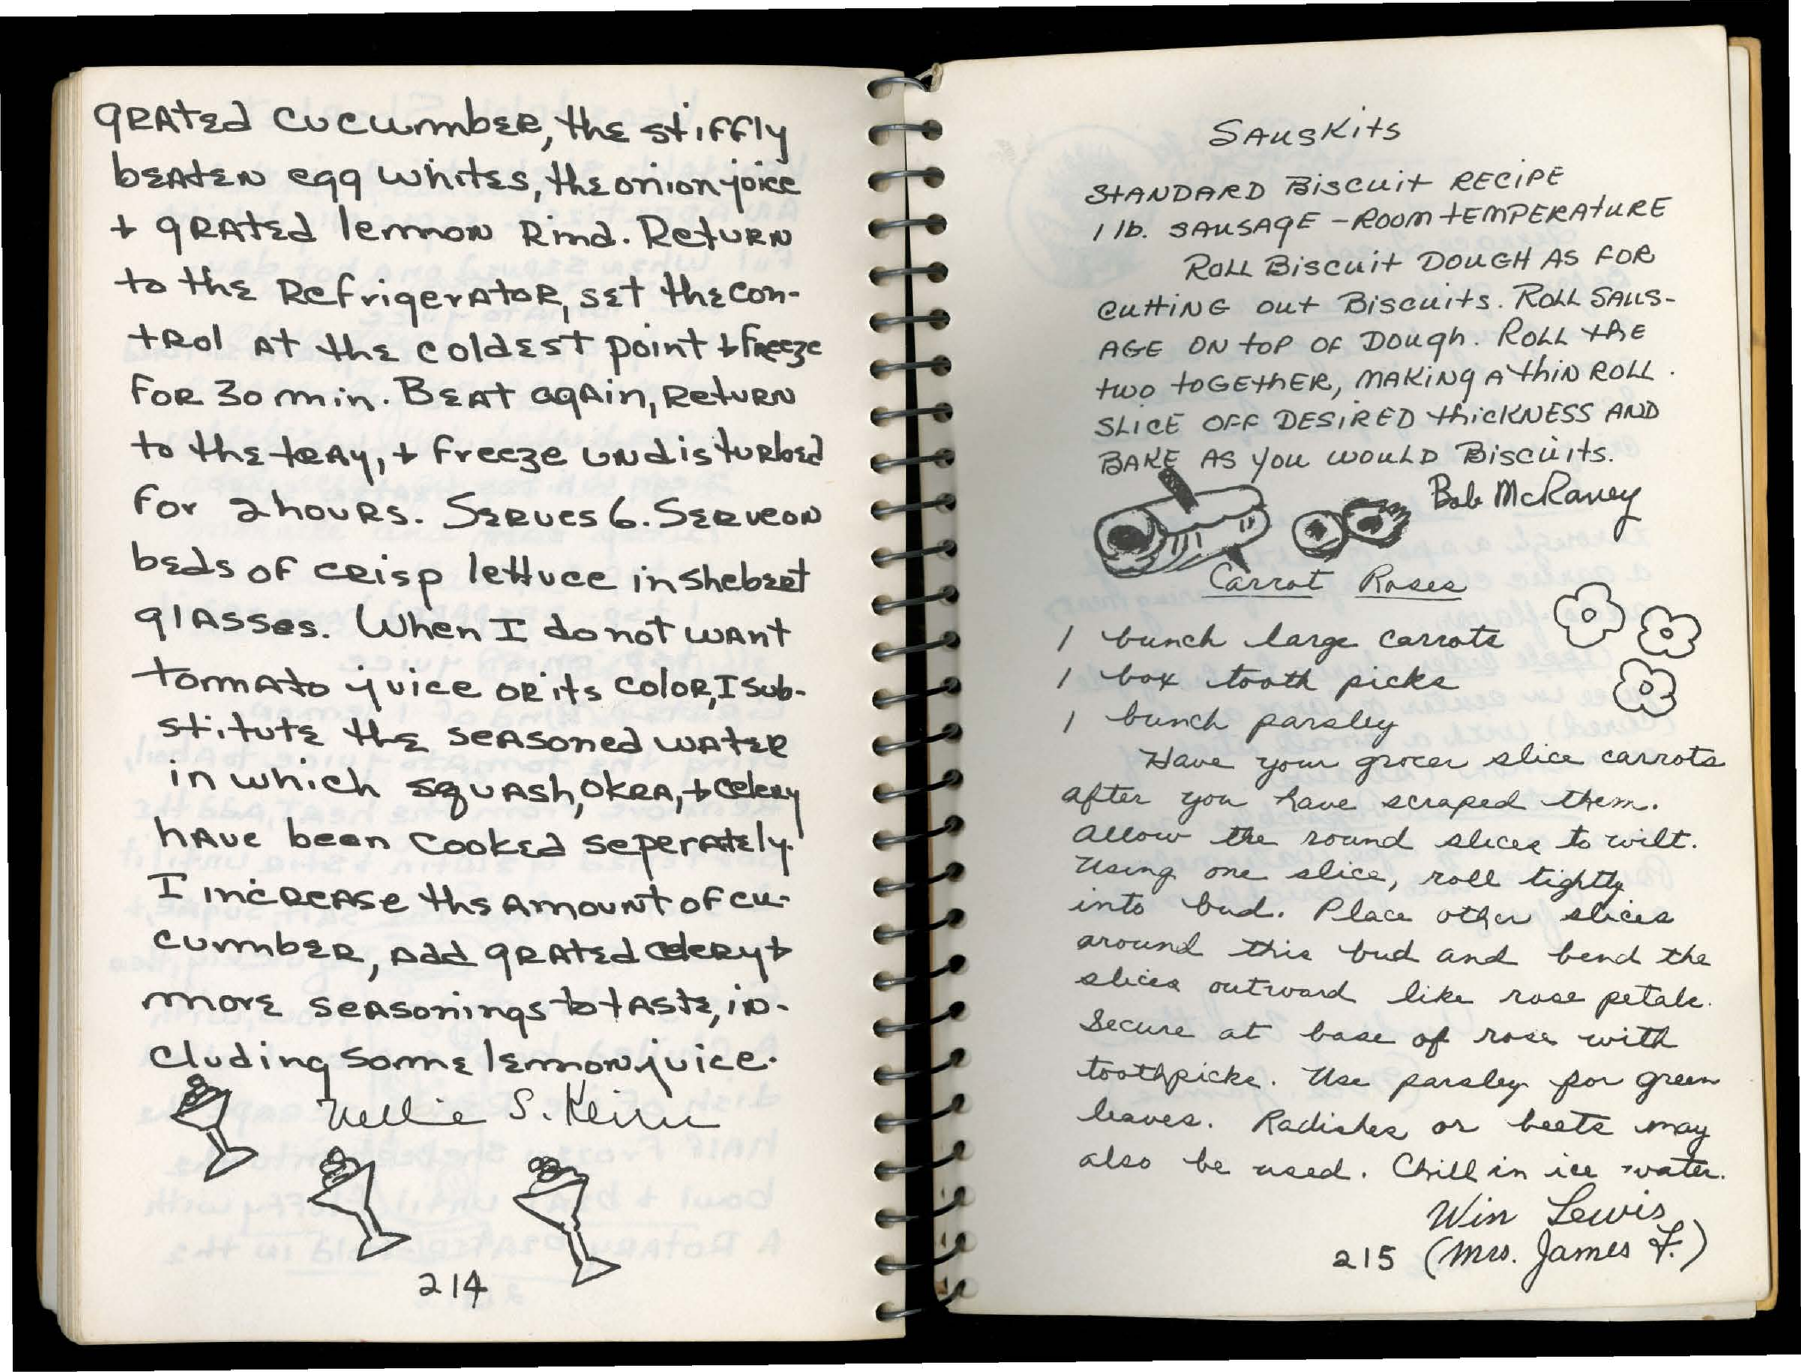 grated cucumber, the stiffly
beaten egg whites, the onion joice
+ grated lemon rind. Return
to the refrigerator, set the con-
trol at the coldest point + freeze
for 30 min. Beat again, return
to the tray, + freeze undisturbed
for 2 hours. Serves 6. Serve on
beds of crisp lettuce in shebert
glasses. When I do not want
tomato juice or its color, I sub-
stitute the seasoned water
in which squash, okra, + celery
have been cooked seperately.
I increase the amount of cu-
cumber, add grated celery +
more seasonings to taste, in-
cluding some lemon juice.
Nellie S. Keirn
214
SAUSKITS
STANDARD BISCUIT RECIPE
1 lb. SAUSAGE - ROOM TEMPERATURE
ROLL BISCUIT DOUGH AS FOR
CUTTING OUT BISCUITS. ROLL SAUS-
AGE ON TOP OF DOUGH. ROLL THE
TWO TOGETHER, MAKING A THIN ROLL.
SLICE OFF DESIRED THICKNESS AND
BAKE AS YOU WOULD BISCUITS.
Bob McRaney
Carrot Roses
1 bunch large carrots
1 box tooth picks
1 bunch parsley
Have your grocer slice carrots
after you have scraped them.
Allow the round slices to wilt.
Using one slice, roll tightly
into bud. Place other slices
around this bud and bend the
slices outward like rose petals.
Secure at base of rose with
toothpicks. Use parsley for green
leaves. Radishes or beets may
also be used. Chill in ice water.
Win Lewis
(Mrs. James F.)
215